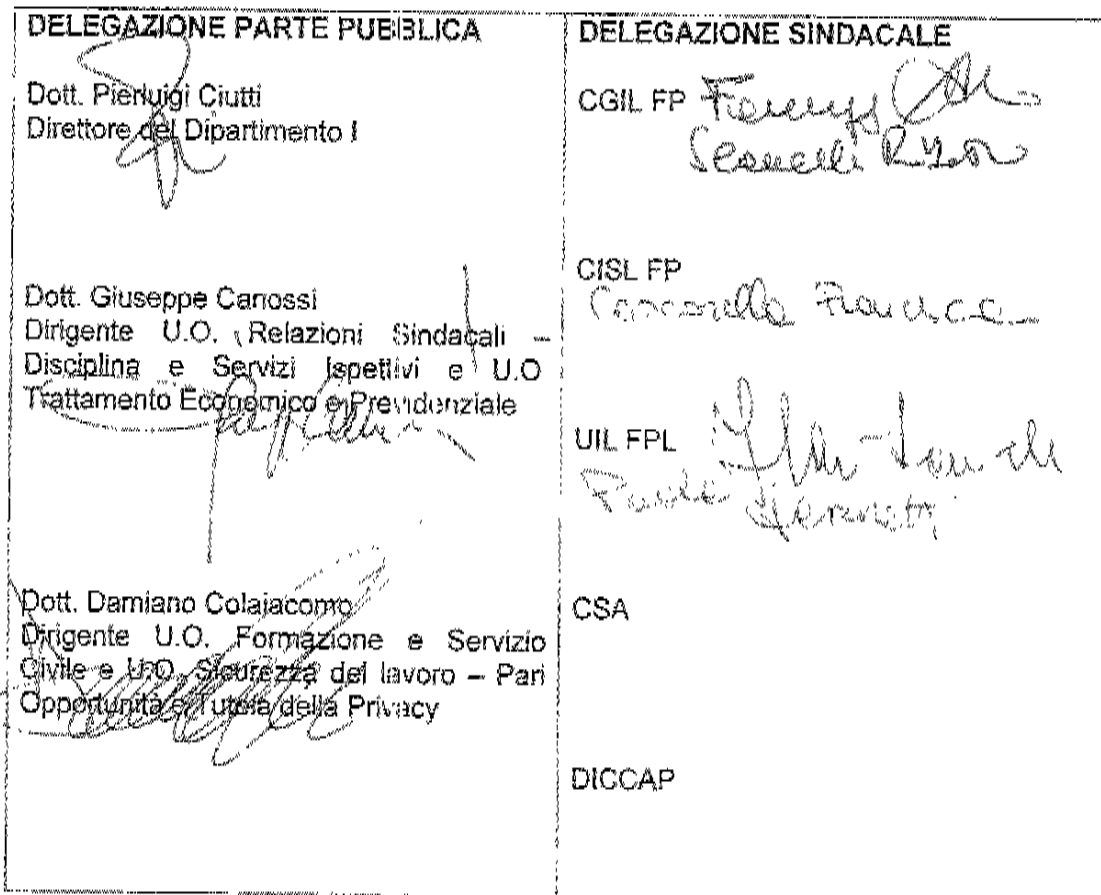 DELEGAZIONE PARTE PUBBLICA
Dott. Pierluigi Ciutti
Direttore del Dipartimento I
Dott. Giuseppe Canossi
Dirigente U.O. Relazioni Sindacali –
Disciplina e Servizi Ispettivi e U.O
Trattamento Economico e Previdenziale
Dott. Damiano Colaiacomo
Dirigente U.O. Formazione e Servizio
Civile e U.O. Sicurezza del lavoro – Pari
Opportunità e Tutela della Privacy
DELEGAZIONE SINDACALE
CGIL FP
CISL FP
UIL FPL
CSA
DICCAP